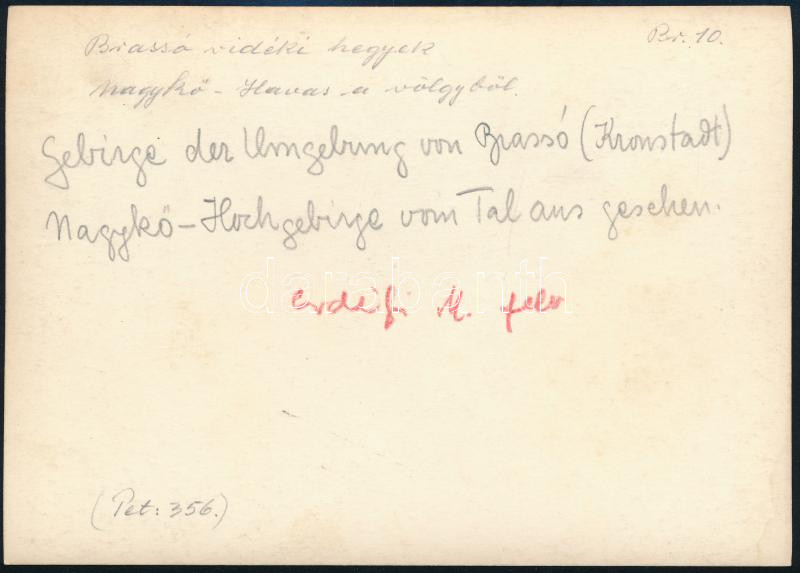 Br. 10.
Brassó vidéki hegyek
Nagykő - Havas a völgyből.
Gebirge der Umgebung von Brassó (Kronstadt)
Nagykő - Hochgebirge vom Tal aus gesehen.
darabanth
Erdélyi M. felv
(Pet: 356.)